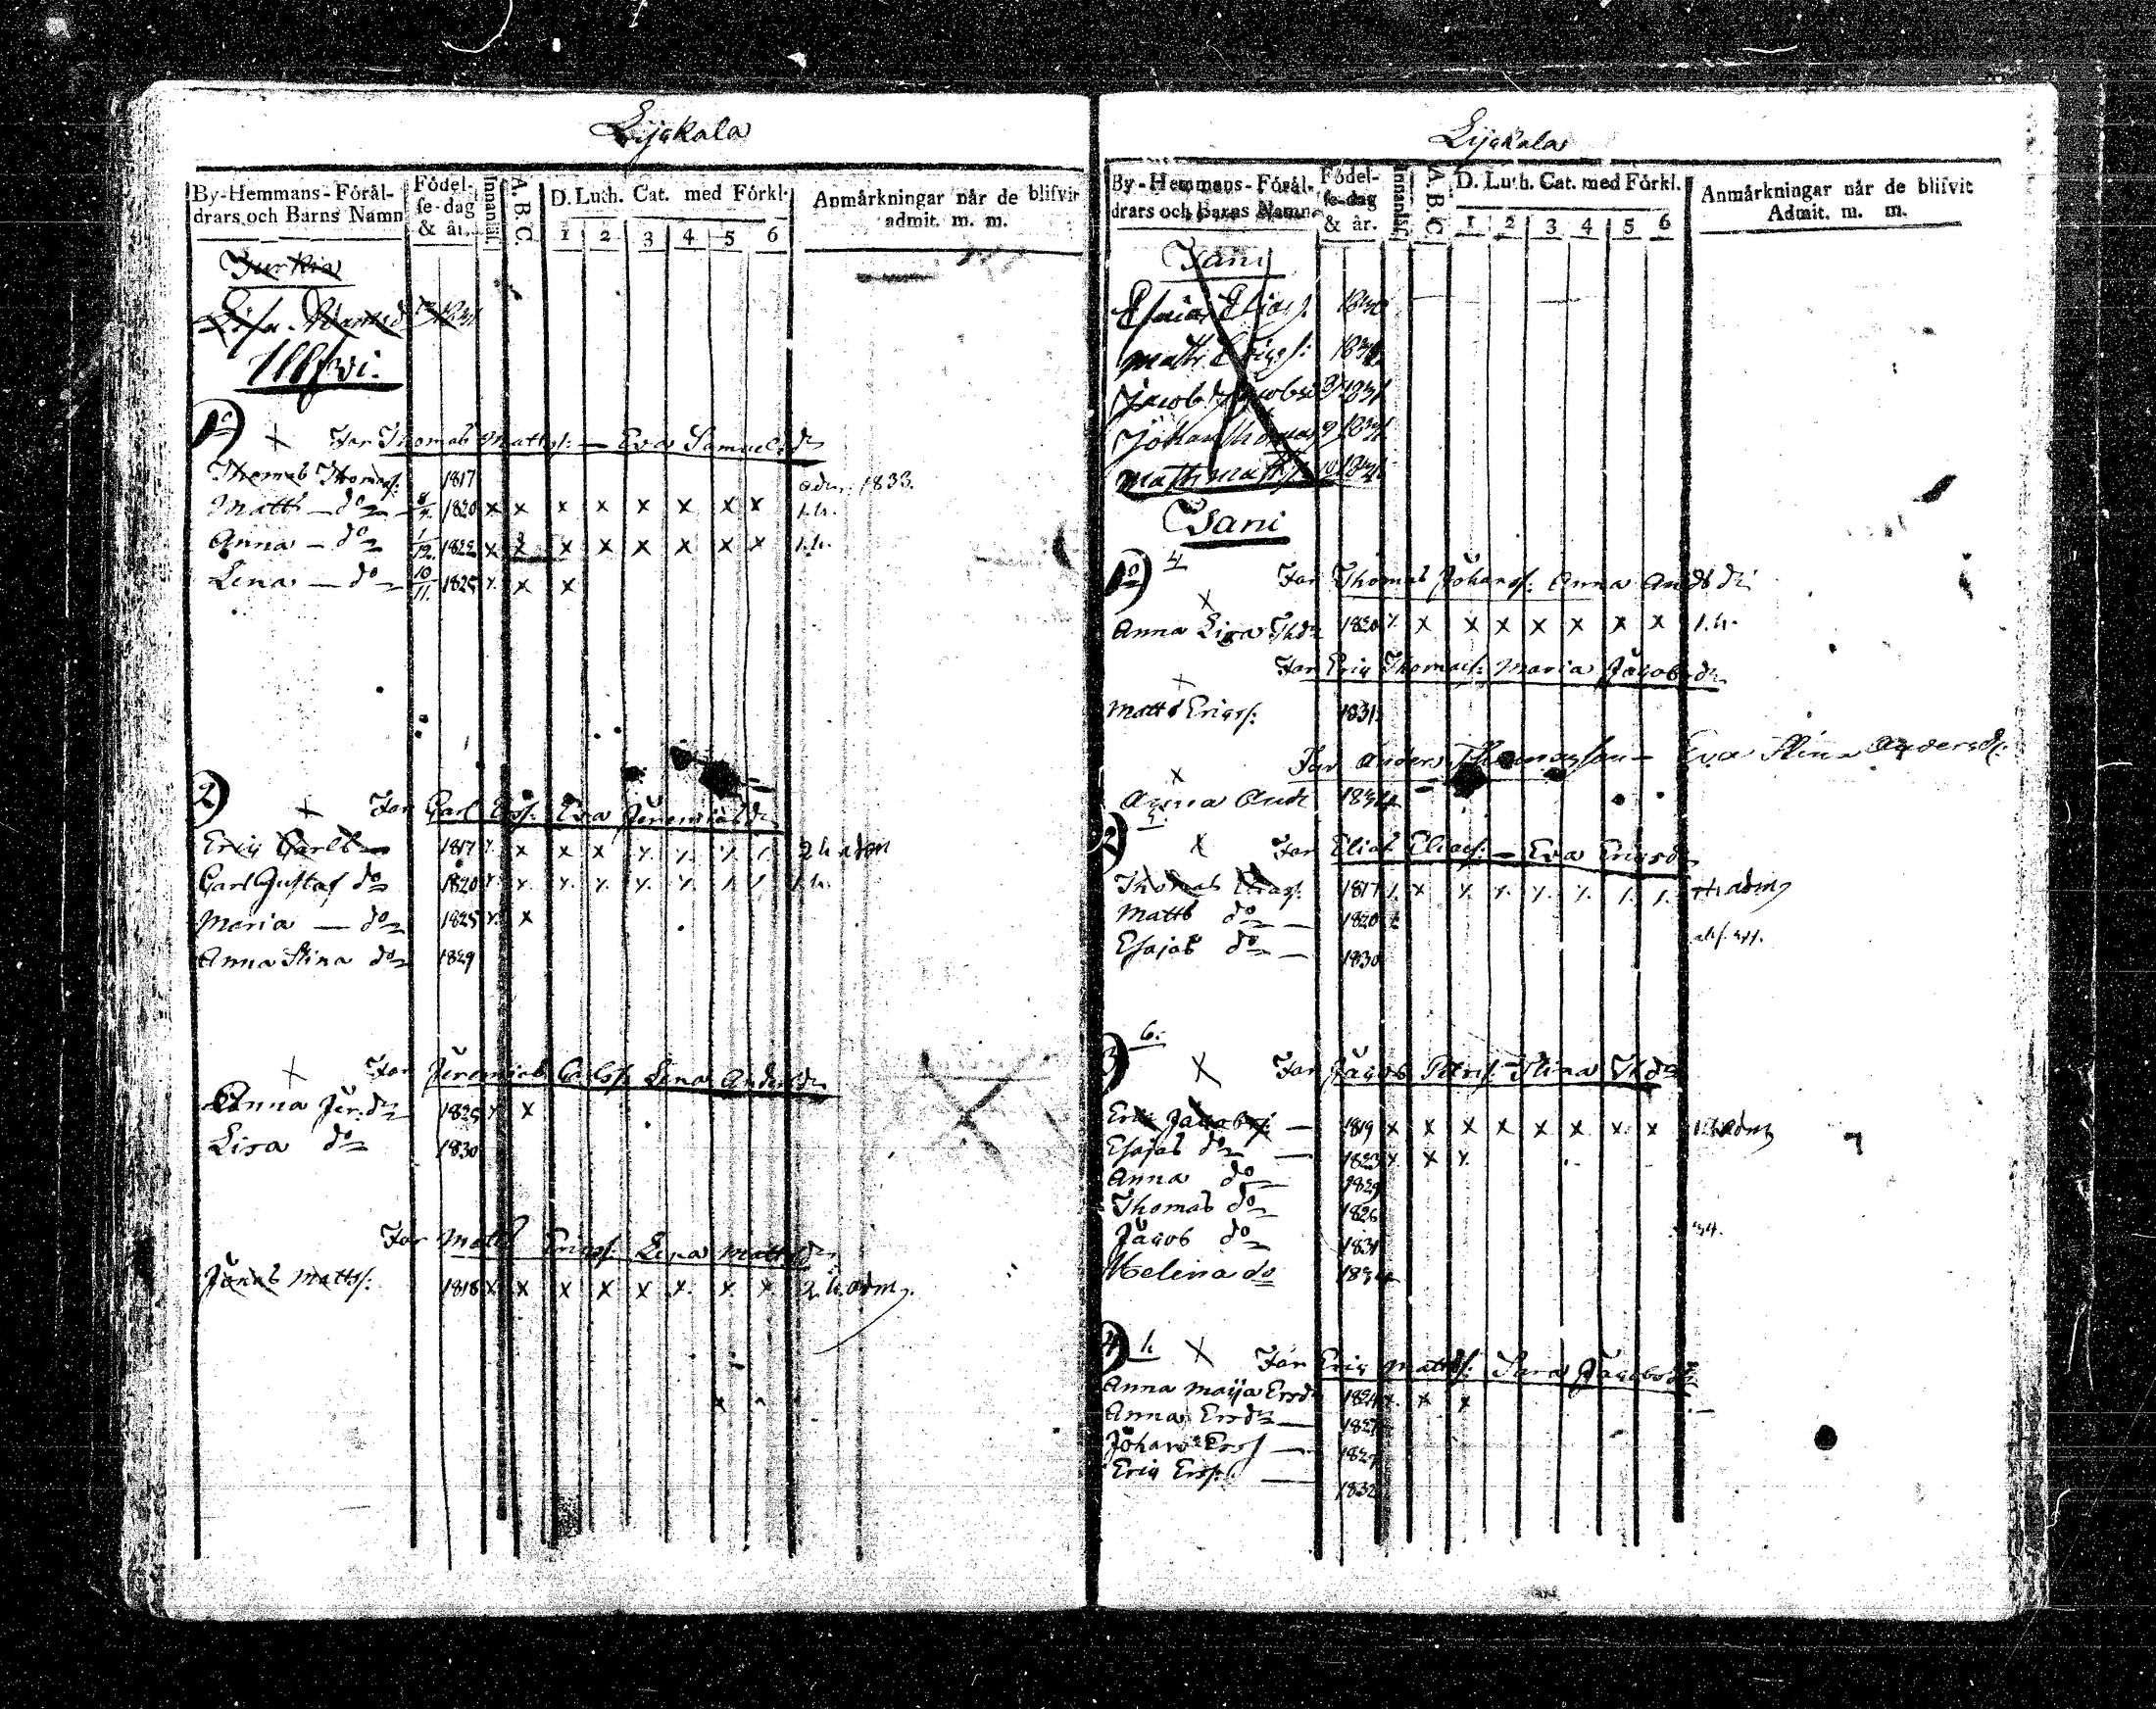 Lijckala
By-Hemmans-Föräl-
drars och Barns Namn
Födel-
se-dag
& år.
Innanläs.
A. B. C.
D. Luth. Cat. med Förkl.
1 2 3 4 5 6
Anmärkningar når de blifvit
admit. m. m.
Jurkia
Lisa
1)
+ Far Thomas Matts: — Eva Samuelsdr
Thomas Thomas: 1817 adm. 1833.
Matts — do 1820 x x x x x x x x 1.h.
Anna — do 1/12 1822 x x x x x x x x 1.h.
Lena — do 10/11 1825 x x x
2)
+ Far Carl Ers: Eva Jeremiasdr
Eriq Carls — 1817 x x x x x x x x 2 h adm
Carl Gustaf do 1820 x x x x x x x x 1.h.
Maria — do 1825 x x
Anna Stina do 1829
+ Far Jeremias Carls: Lena Andersdr
Anna Jer:dr 1825 x x
Lisa do 1830
Far Matts Eriqs: Lisa Mattsdr
Jonas Matts: 1818 x x x x x x x x 2 h. adm.
Lijckala
By-Hemmans-Föräl-
drars och Barns Namn
Födel-
se-dag
& år.
Innanläs.
A. B. C.
D. Luth. Cat. med Förkl.
1 2 3 4 5 6
Anmärkningar når de blifvit
Admit. m. m.
Jani
Esaias Elias:
Math: Eriqs:
Jacob Jacobs 1831
Johan Thomas 1831
Math: Maths:
Jani
1) 4
Far Thomas Johans: Anna Andsdr
x
Anna Lisa Thdr 1820 x x x x x x x x 1.h.
Far Eriq Thomas: Maria Jacobsdr
x
Matts Eriqs: 1831
Far Anders Thomasson — Eva Stina Andersdr
x
Anna Andr 1834
2) 5.
x Far Elias Elias: — Eva Eriqsdr
Thomas Elias: 1817 x x x x x x x x adm
Matts do — 1820 x
Esajas do — 1830
3) 6.
x Far Jacob Petris: Stina Thdr
Eriq Jacobs: — 1819 x x x x x x x x 1 h adm
Esajas do — 1823 x x x
Anna do 1829
Thomas do 1826
Jacob do 1831
Helena do 1834
4) 1.
x Far Eriq Matts: Sara Jacobsdr
Anna Maija Ersdr 1824 x x x
Anna Ersdr — 1827
Johan Ers: — 1829
Eriq Ers: — 1832